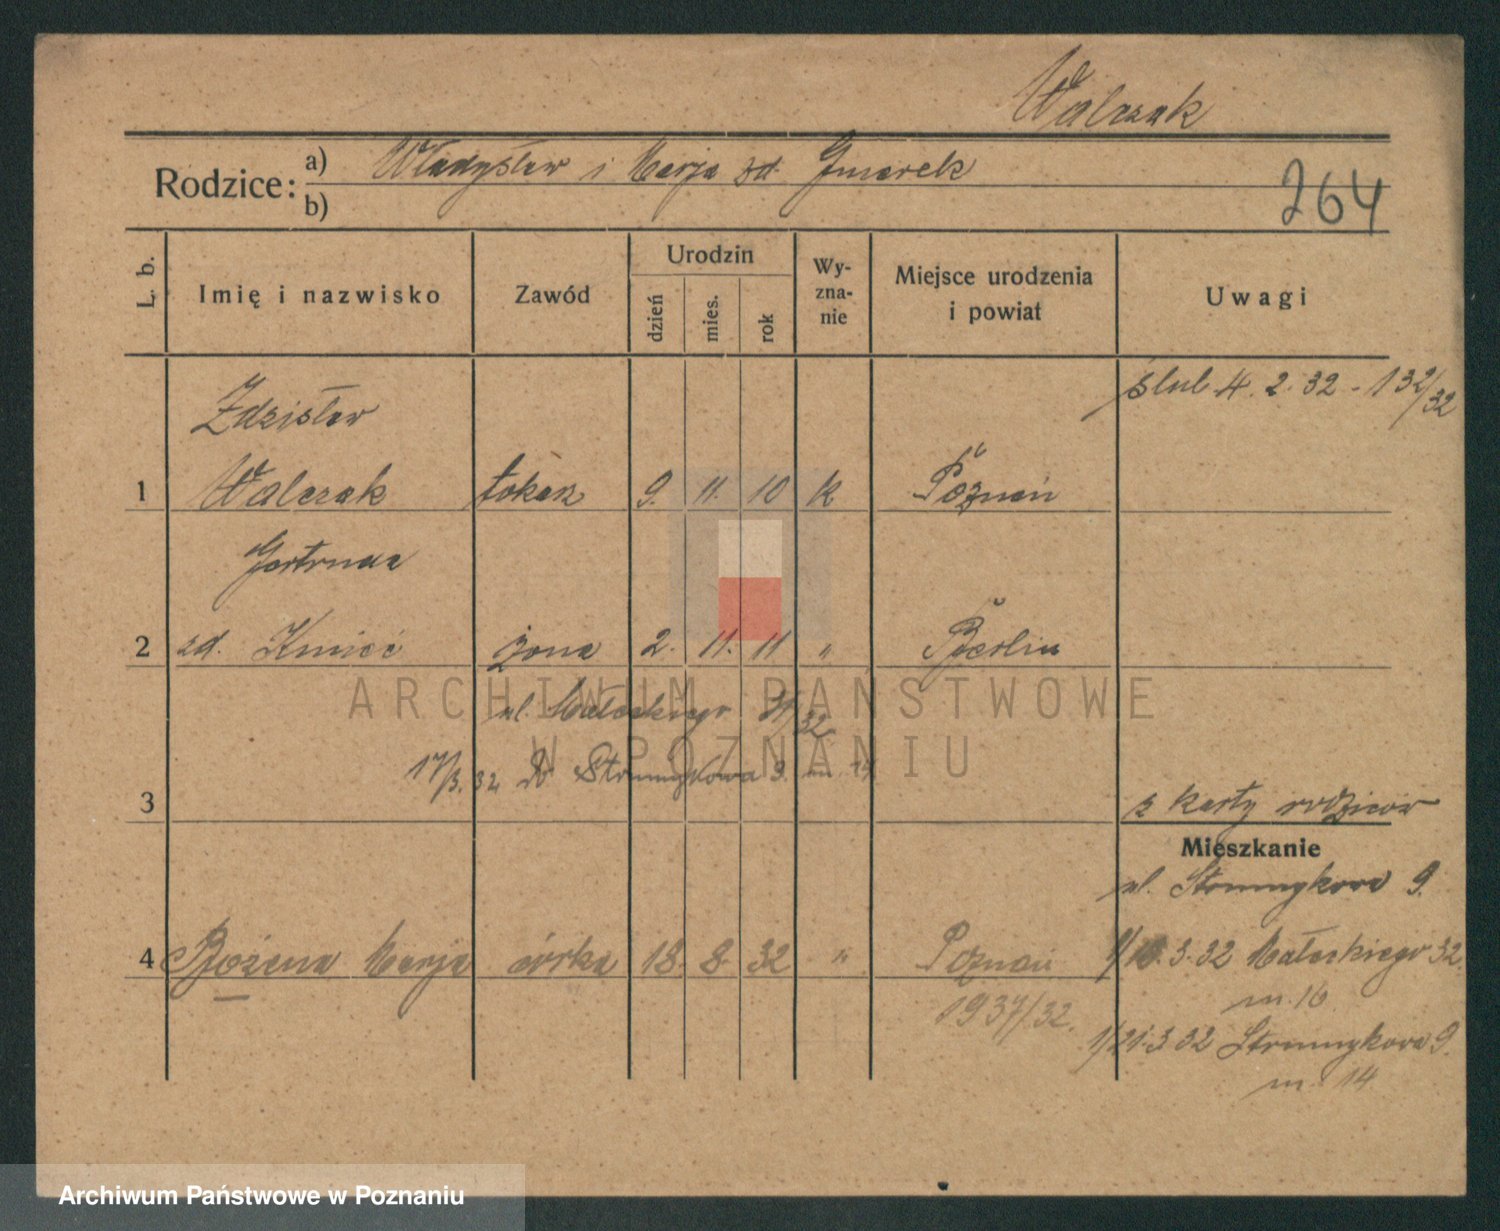 Walczak
Rodzice: a) Władysław i Marja zd. Gmerek
b)
264
L. b. Imię i nazwisko Zawód Urodzin dzień mies. rok Wy-zna-nie Miejsce urodzenia i powiat Uwagi
ślub 4. 2. 32 - 132/32
Zdzisław
1 Walczak tokarz 9. 11. 10 k Poznań
Gertruda
2 zd. Kmieć żona 2. 11. 11 " Berlin
ARCHIWUM PAŃSTWOWE
ul. Małeckiego 31/32
W POZNANIU
17/3. 32 Strumykowa 9. m. 14
3 z karty rodziców
Mieszkanie
ul. Strumykowa 9.
4 Bożena Marja córka 18. 8. 32 " Poznań
3. 32 Małeckiego 32
m. 16
1937/32.
1/21. 3 32 Strumykowa 9.
m. 14
Archiwum Państwowe w Poznaniu